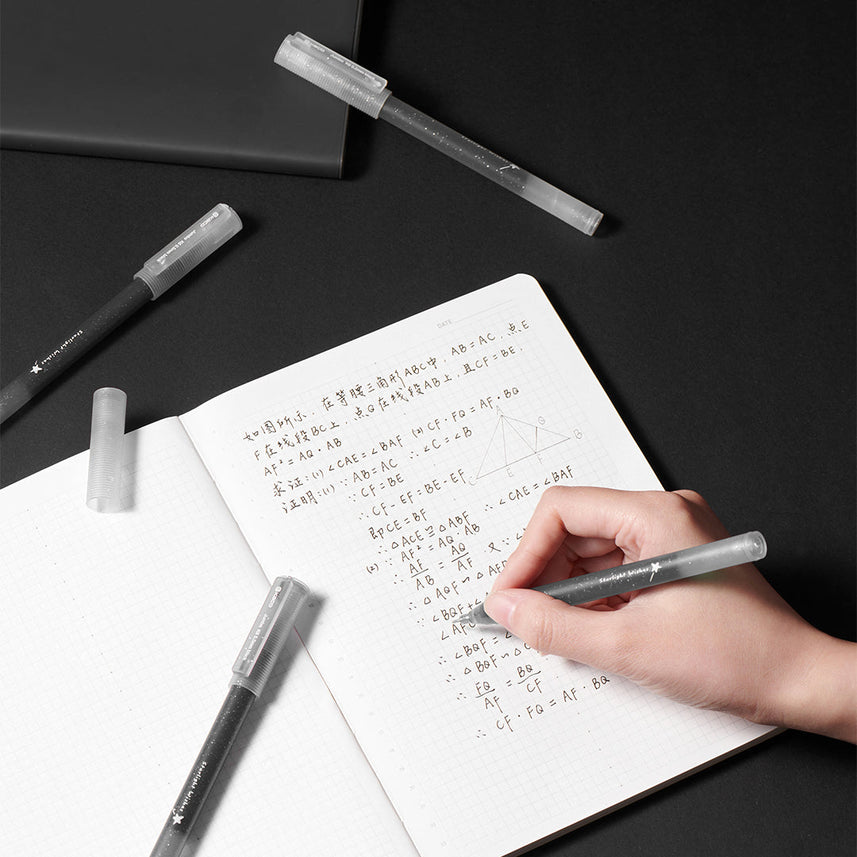 DATE
如图所示，在等腰三角形ABC中，AB=AC，点E
F在线段BC上，点Q在线段AB上，且CF=BE，
AF²=AQ·AB
求证:(1)∠CAE=∠BAF (2)CF·FQ=AF·BQ
证明:(1)∵AB=AC ∴∠C=∠B
∵CF=BE
∴CF-EF=BE-EF
即CE=BF ∴∠CAE=∠BAF
∴△ACE≌△ABF
(2) ∵AF²=AQ·AB
∴AF/AB=AQ/AF 又∵
∴△AQF∽△AF
∴∠BQF+
∠AF
∴∠BQF=∠
∴△BQF∽△C
∴FQ/AF=BQ/CF
∴CF·FQ=AF·BQ
A
Q
B
C
E
F
Starlight Wishes
Starlight Wishes
Starlight Wishes